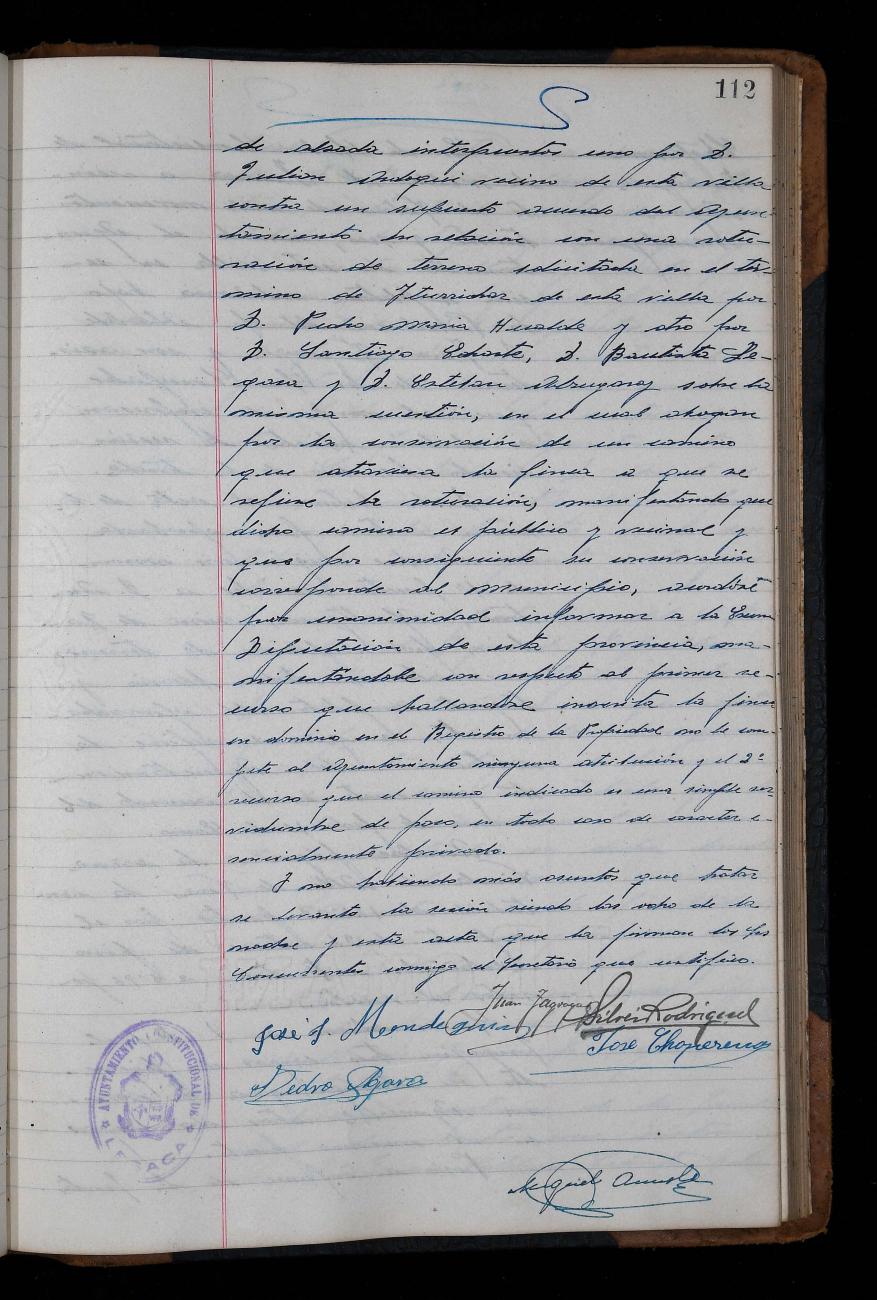 112
de alzada interpuestos uno por D.
Julian Andogui vecino de esta villa
contra un supuesto acuerdo del Ayun-
tamiento en relación con una rotu-
ración de terreno solicitada en el tér-
mino de de esta villa por
D. Pedro Maria Hualde y otro por
D. Santiago Echarte, D. Bautista Pe-
gara y D. Esteban sobre la
misma cuestión, en el cual abogan
por la conservación de un camino
que atraviesa la finca a que se
refiere la roturación, manifestando que
dicho camino es público y vecinal y
que por consiguiente su conservación
corresponde al municipio, acordóse
por unanimidad informar a la Excma
Diputación de esta provincia, ma-
nifestándole con respecto al primer re-
curso que hallandose inscrita la finca
en dominio en el Registro de la Propiedad no le com-
pete al Ayuntamiento ninguna atribución y el 2º
recurso que el camino indicado es una simple ser-
vidumbre de paso, en todo caso de caracter e-
sencialmente privado.
Y no habiendo más asuntos que tratar
se levantó la sesión siendo las ocho de la
noche y esta acta que la firman los Srs
Concurrentes conmigo el Secretario que certifico.
Juan
José J. Mendi
Silverio Rodriguez
José Choperena
Pedro Igara
Miguel
AYUNTAMIENTO CONSTITUCIONAL DE
LESACA